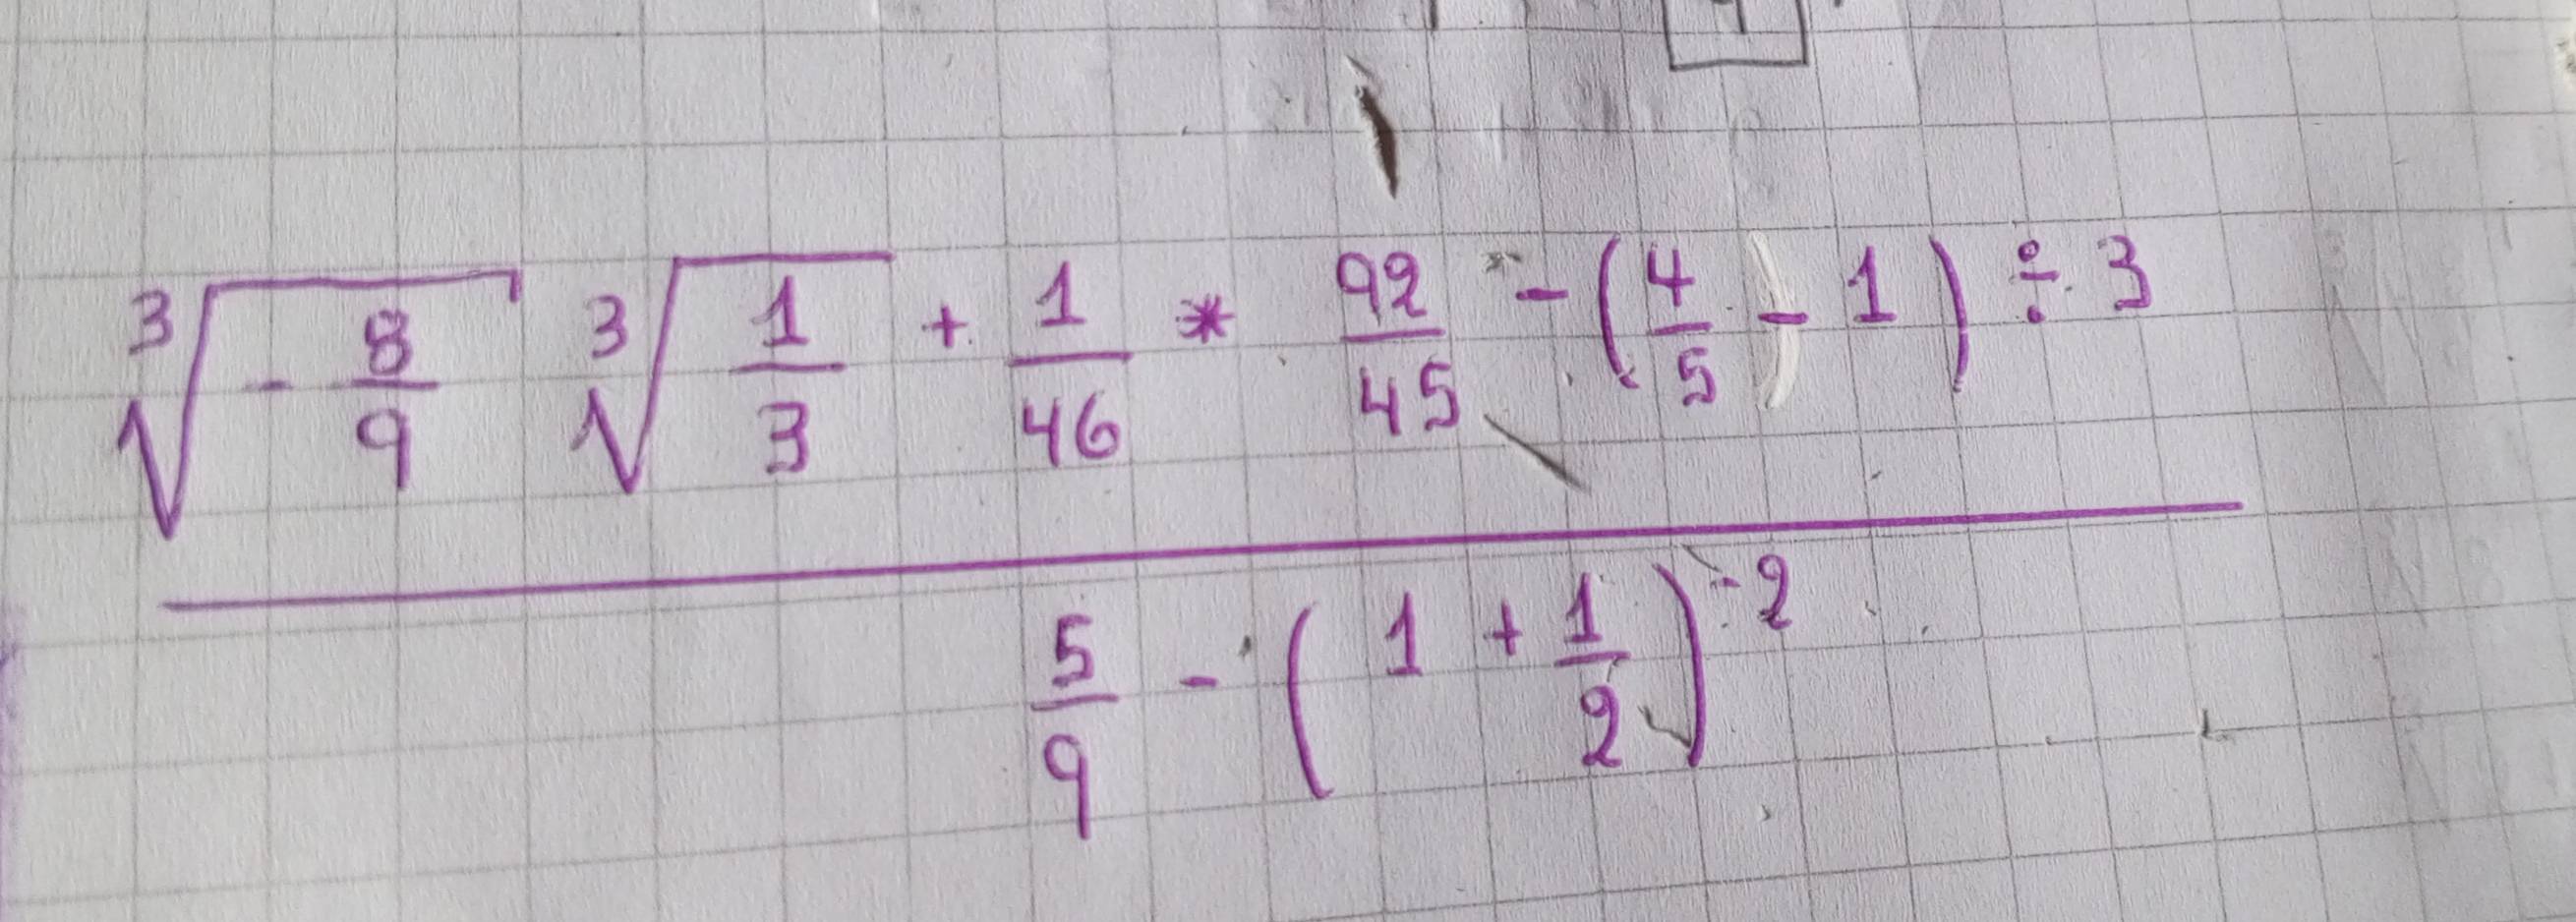 ∛(-8/9) ∛(1/3) + 1/46 * 92/45 - (4/5 - 1) ÷ 3
5/9 - (1 + 1/2)⁻²